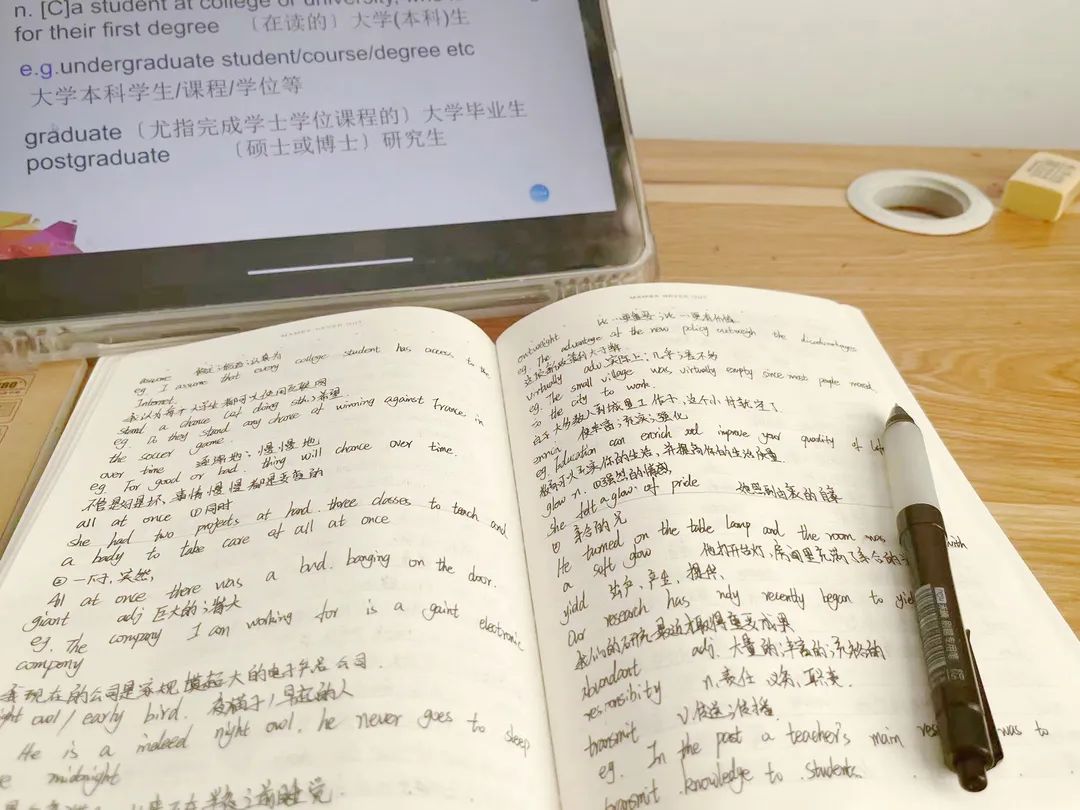 n. [C]a student at college or university, who is
for their first degree （在读的）大学(本科)生
e.g.undergraduate student/course/degree etc
大学本科学生/课程/学位等
graduate （尤指完成学士学位课程的）大学毕业生
postgraduate （硕士或博士）研究生
MAMBA NEVER OUT
assume 认为
eg I assume that every college student has access to the
Internet.
我认为每个大学生都可以使用互联网
stand a chance (of doing sth) 希望
eg Do they stand any chance of winning against France in
the soccer game.
over time 逐渐地；慢慢地
eg For good or bad. thing will chance over time.
不管是好是坏，事情慢慢都是变的
all at once ①同时
She had two projects at hand. three classes to teach and
a baby to take care of all at once
②一下子，突然，
All at once there was a banging on the door.
giant adj 巨大的；伟大
eg. The company I am working for is a gaint electronic
company
我现在的公司是家规模超大的电子产品公司.
night owl / early bird. 夜猫子/早起的人
He is a indeed night owl. he never goes to sleep
midnight
MAMBA NEVER OUT
outweight 比…更重要；比…更有价值
eg The advantage of the new policy outweigh the disadvantages
virtually adv 实际上；几乎；差不多
eg. The small village was virtually empty since most people moved
to the city to work.
由于大多数人到城里工作了，这个小村就空了
使丰富；充实；强化
eg Education can enrich and improve your quality of life
教育可以充实你的生活，并提高你的生活质量.
glow n. ①强烈的情感
She felt a glow of pride
②柔和的光
He turned on the table lamp and the room was with
a soft glow 他打开台灯，房间里充满了柔合的
yield 出产，产生，提供.
Our research has only recently began to yield
我们的研究最近才取得重要成果
abundant adj. 大量的；丰富的；充裕的
responsibity n.责任 义务，职责.
transmit v.传递；传播.
eg. In the past a teacher's main was to
transmit knowledge to students.